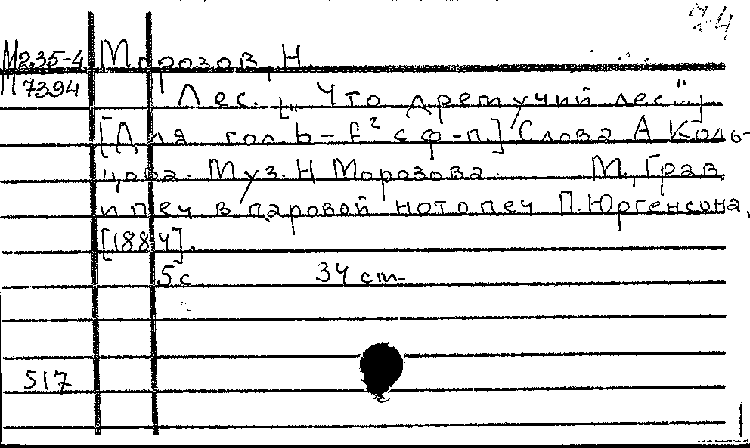 24
М235-4 Морозов, Н.
М7394
Лес. ["Что дремучий лес"]
[Для гол. b-f² с ф-п.] Слова А. Коль-
цова. Муз. Н. Морозова. М., Грав.
и печ. в паровой нотопеч. П. Юргенсона,
[1884].
5 с. 34 см.
517